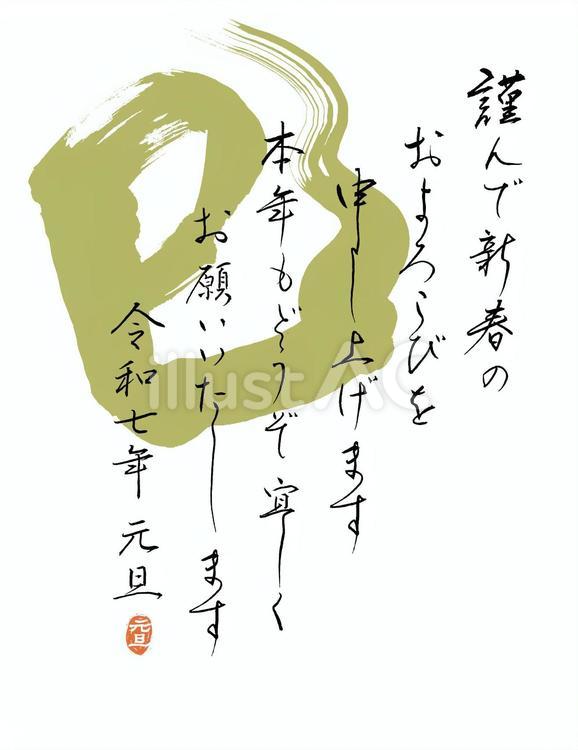 謹んで新春の
およろこびを
申し上げます
本年もどうぞ宜しく
お願いいたします
令和七年 元旦
元旦
illustAC